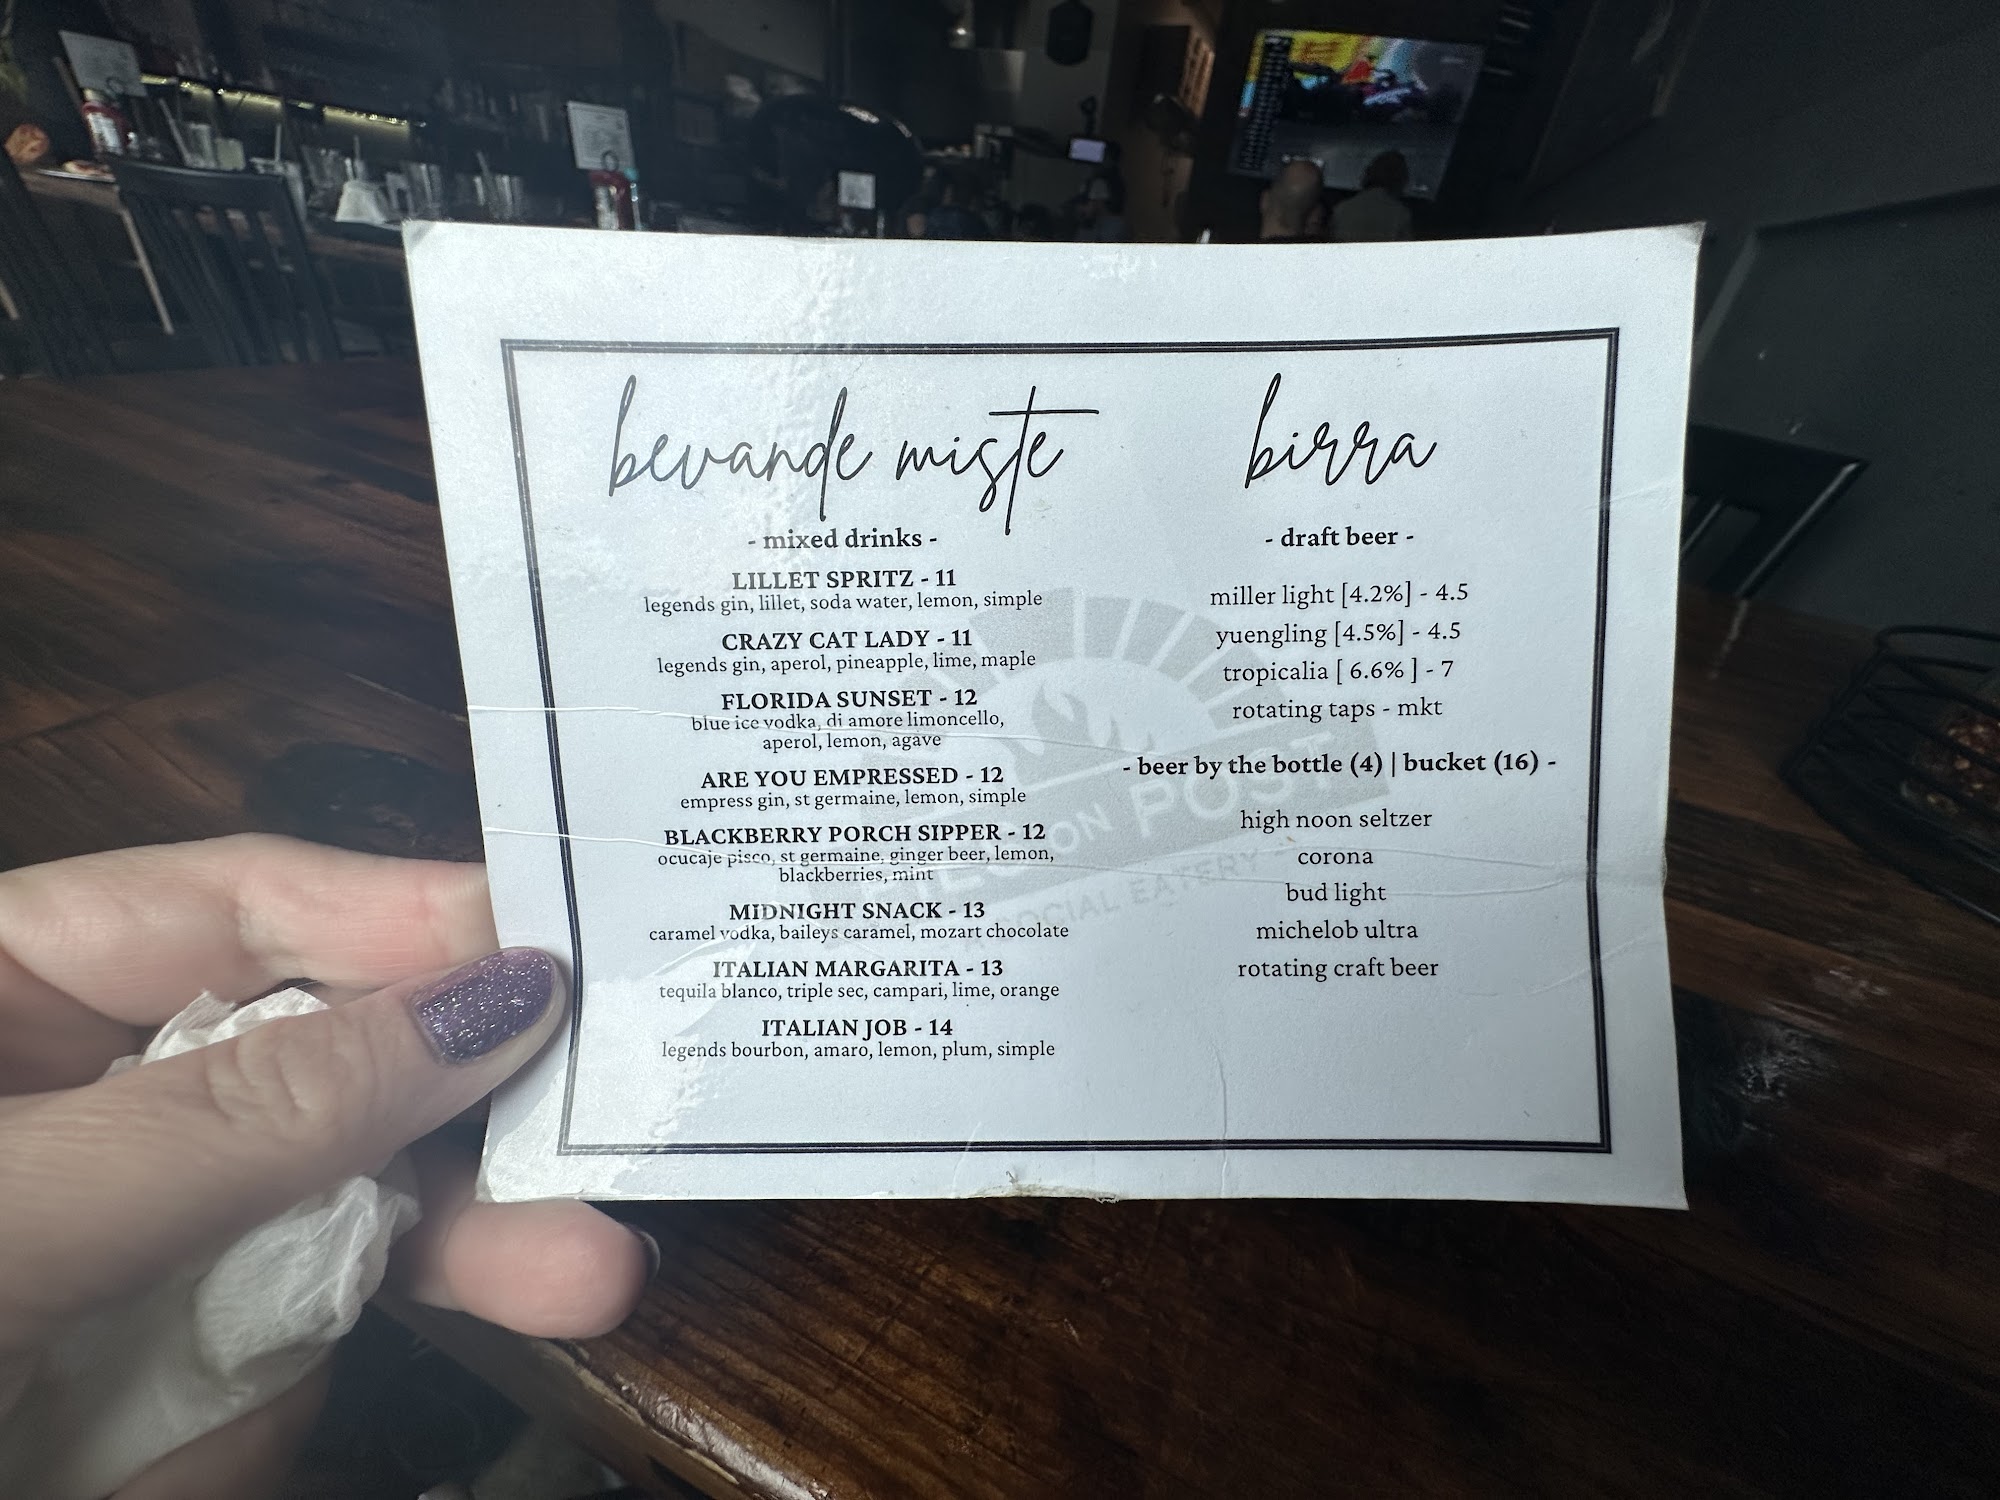 bevande miste
- mixed drinks -
LILLET SPRITZ - 11
legends gin, lillet, soda water, lemon, simple
CRAZY CAT LADY - 11
legends gin, aperol, pineapple, lime, maple
FLORIDA SUNSET - 12
blue ice vodka, di amore limoncello,
aperol, lemon, agave
ARE YOU EMPRESSED - 12
empress gin, st germaine, lemon, simple
BLACKBERRY PORCH SIPPER - 12
ocucaje pisco, st germaine, ginger beer, lemon,
blackberries, mint
MIDNIGHT SNACK - 13
caramel vodka, baileys caramel, mozart chocolate
ITALIAN MARGARITA - 13
tequila blanco, triple sec, campari, lime, orange
ITALIAN JOB - 14
legends bourbon, amaro, lemon, plum, simple
birra
- draft beer -
miller light [4.2%] - 4.5
yuengling [4.5%] - 4.5
tropicalia [ 6.6% ] - 7
rotating taps - mkt
- beer by the bottle (4) | bucket (16) -
high noon seltzer
corona
bud light
michelob ultra
rotating craft beer
ON POST
SOCIAL EATERY